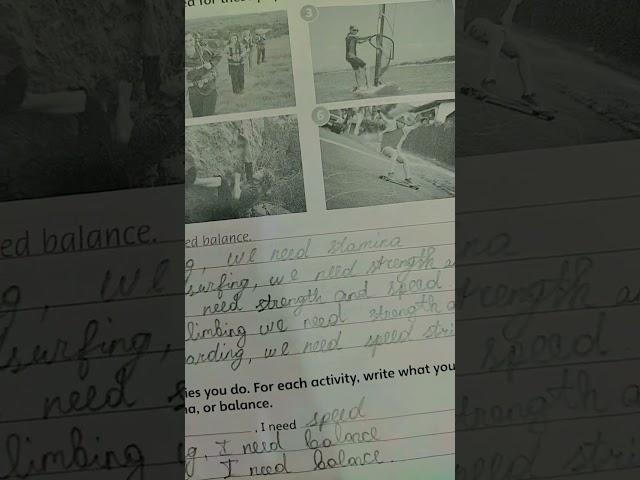 d for these
3
6
ed balance.
g, we need stamina
surfing, we need strength a
need strength and speed.
limbing we need strength a
arding, we need speed stre
ies you do. For each activity, write what you
na, or balance.
. I need speed
g, I need balance
I need balance.